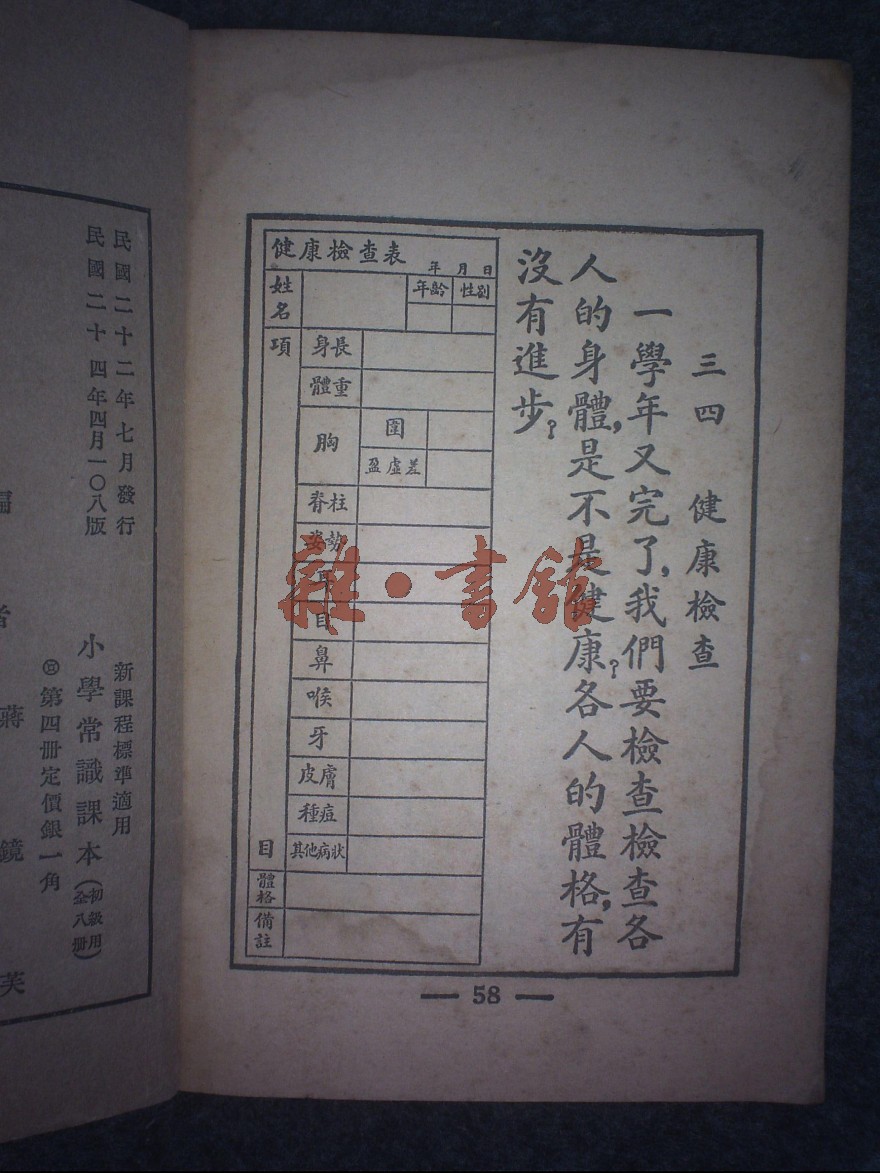 三四 健康檢查
一學年又完了,我們要檢查檢查各
人的身體,是不是健康?各人的體格,有
沒有進步?
健康檢查表
年 月 日
姓名
年齡
性別
項目
身長
體重
胸
圍
盈虛差
脊柱
姿勢
耳
目
鼻
喉
牙
皮膚
種痘
其他病狀
體格
備註
58
雜·書館
民國二十二年七月發行
民國二十四年四月一〇八版
新課程標準適用
小學常識課本(初級用全八冊)
第四冊定價銀一角
編
者
蔣
鏡
芙